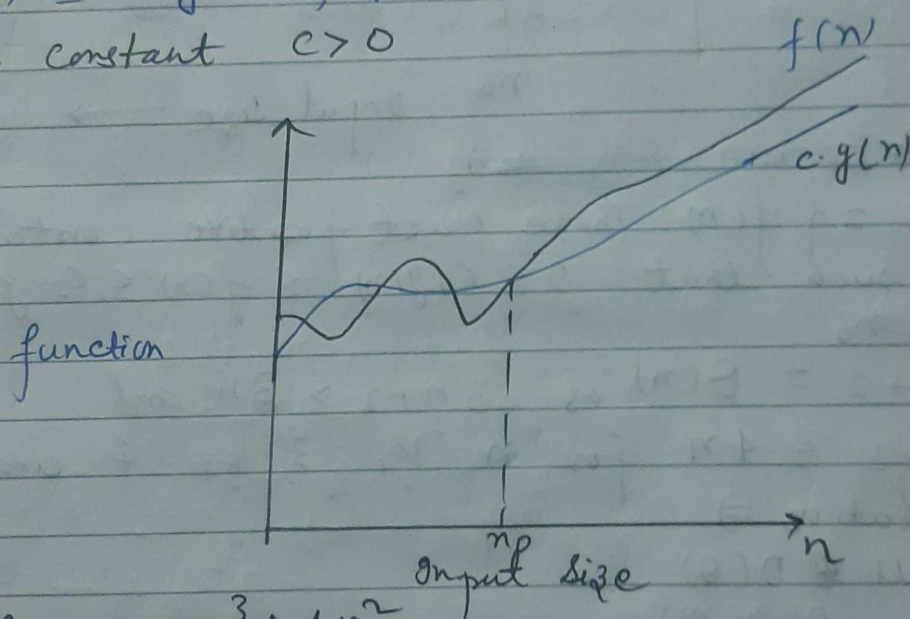 constant c > 0
f(n)
c.g(n)
function
n
Input size